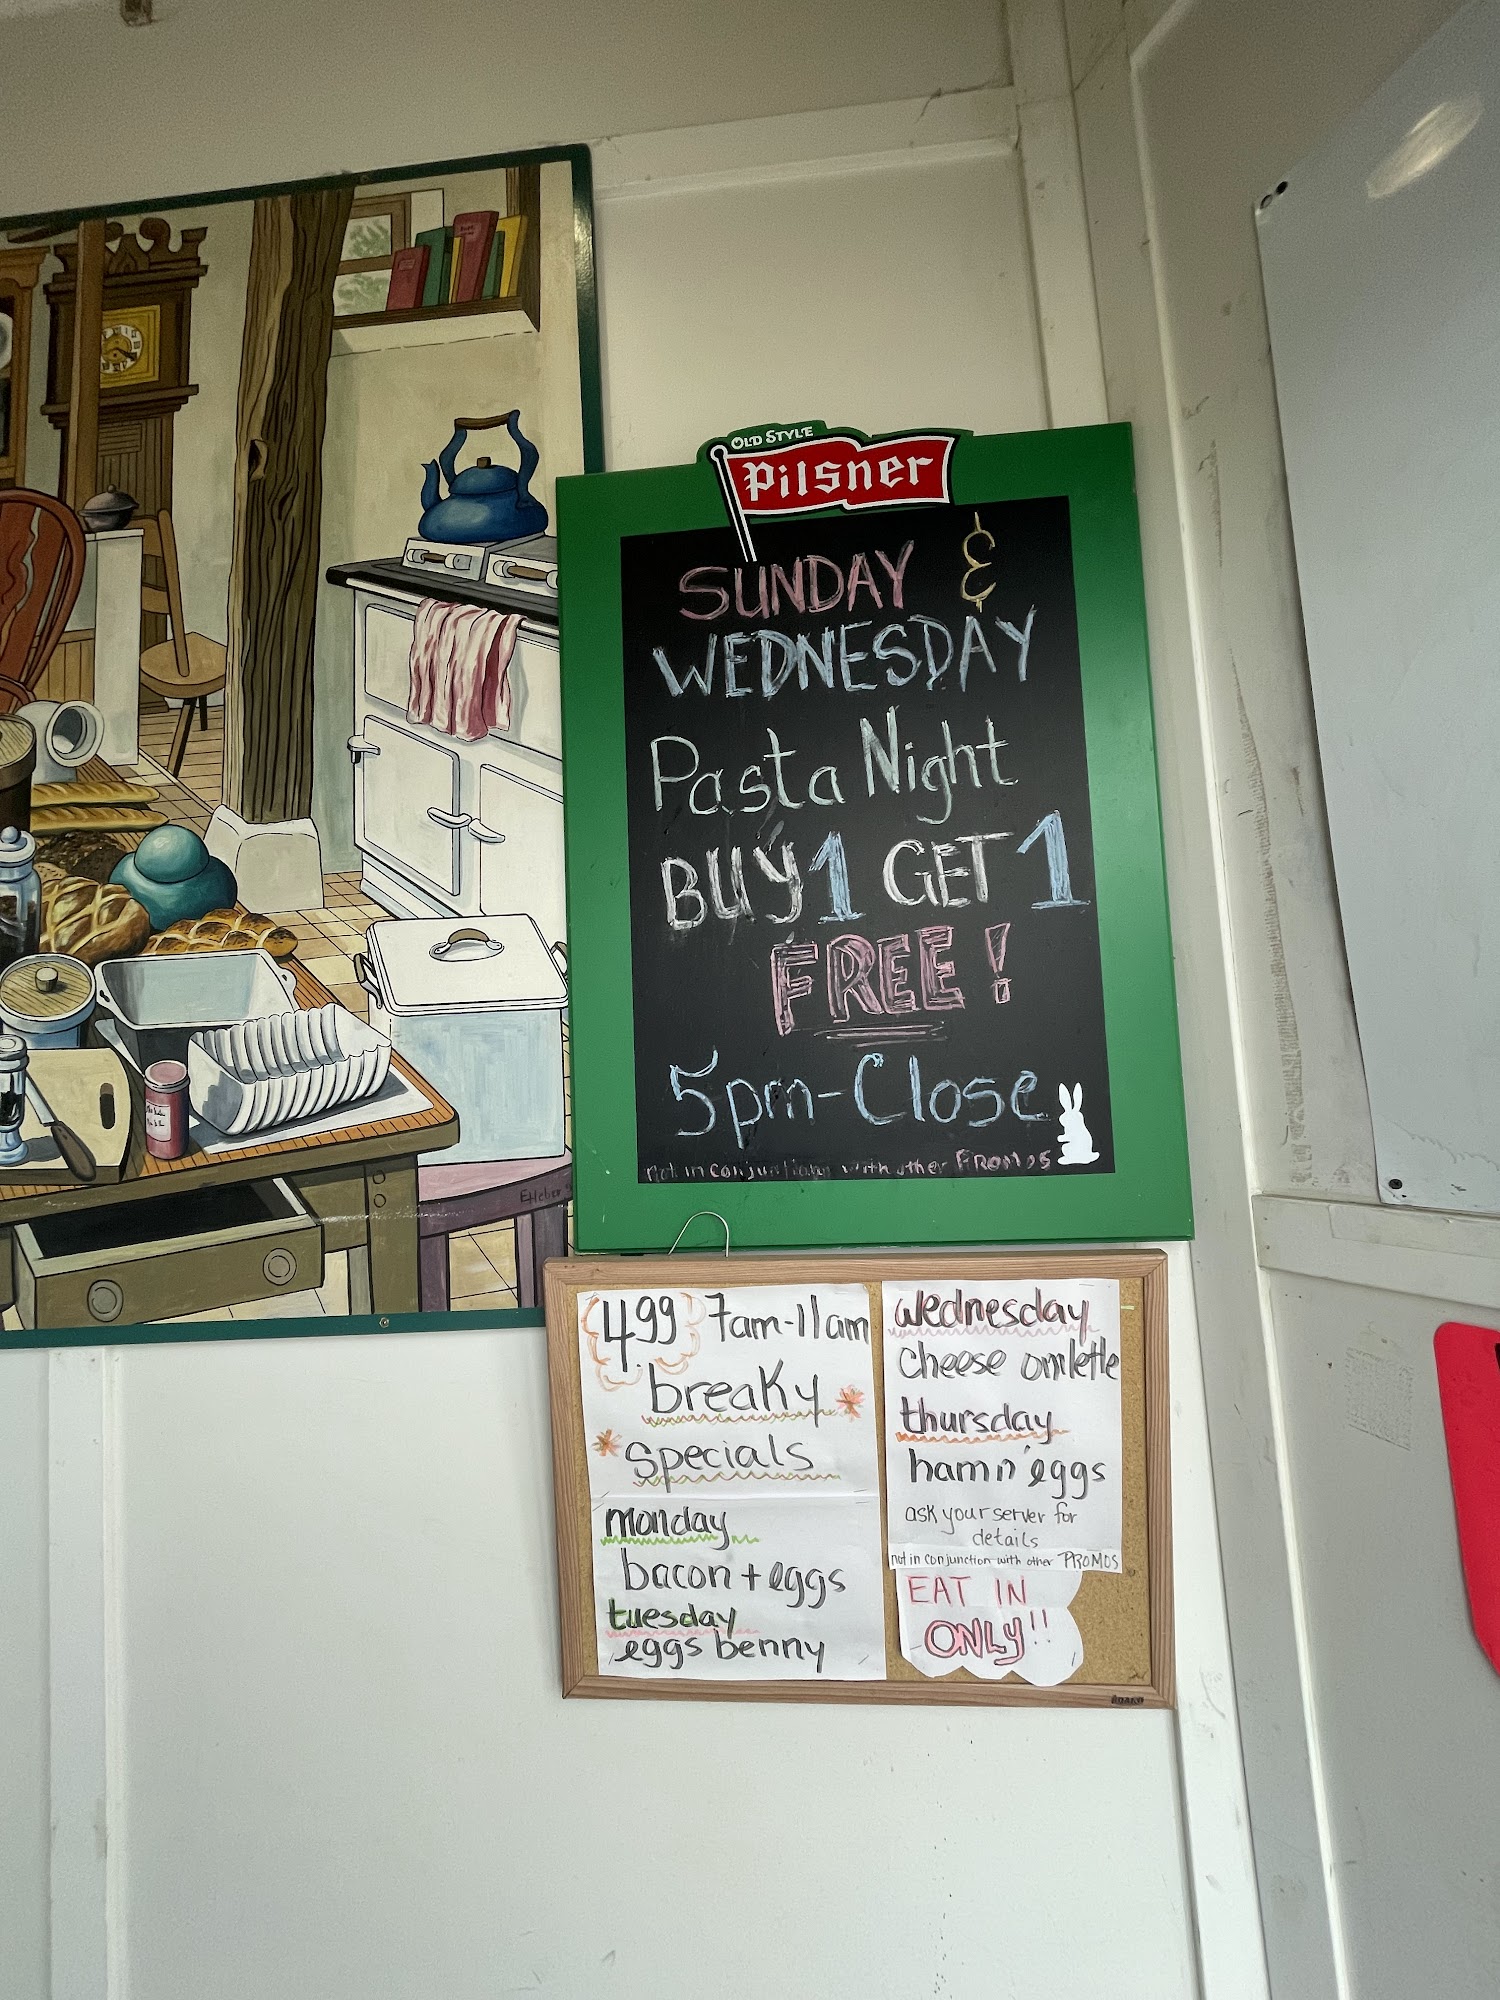 OLD STYLE
Pilsner
SUNDAY &
WEDNESDAY
Pasta Night
BUY 1 GET 1
FREE!
5pm-Close
not in conjuntion with other PROMOS
4.99 7am-11am
breaky
specials
monday
bacon + eggs
tuesday
eggs benny
wednesday
cheese omlette
thursday
ham n' eggs
ask your server for
details
not in conjunction with other PROMOS
EAT IN
ONLY!!